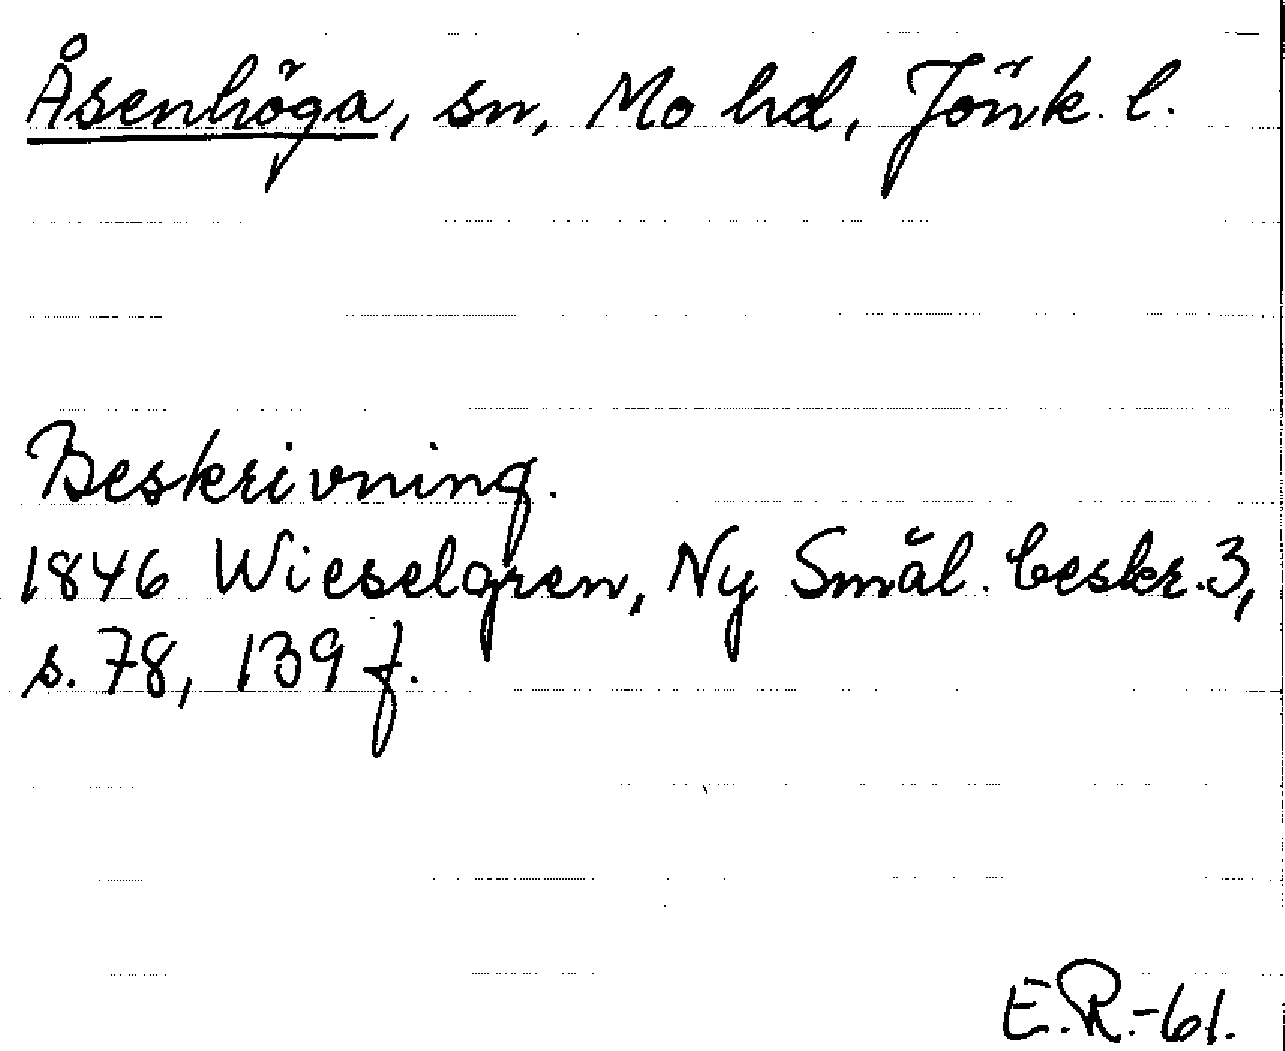 Åsenhöga, sn, Mo hd, Jönk. l.
Beskrivning.
1846 Wieselgren, Ny Smål. beskr. 3,
s. 78, 139 f.
E.R.-61.